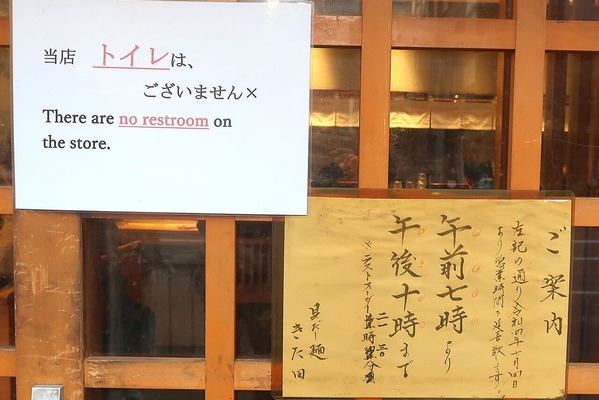 当店 トイレは、
ございません×
There are no restroom on
the store.
ご案内
左記の通り令和四年十月四日
より営業時間を延長致します。
午前七時より
午後十時まで
※ラストオーダー
貝だし麺
きた田